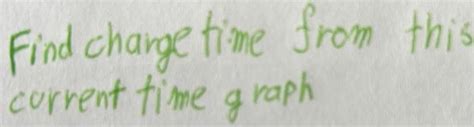 Find charge time from this
current time graph